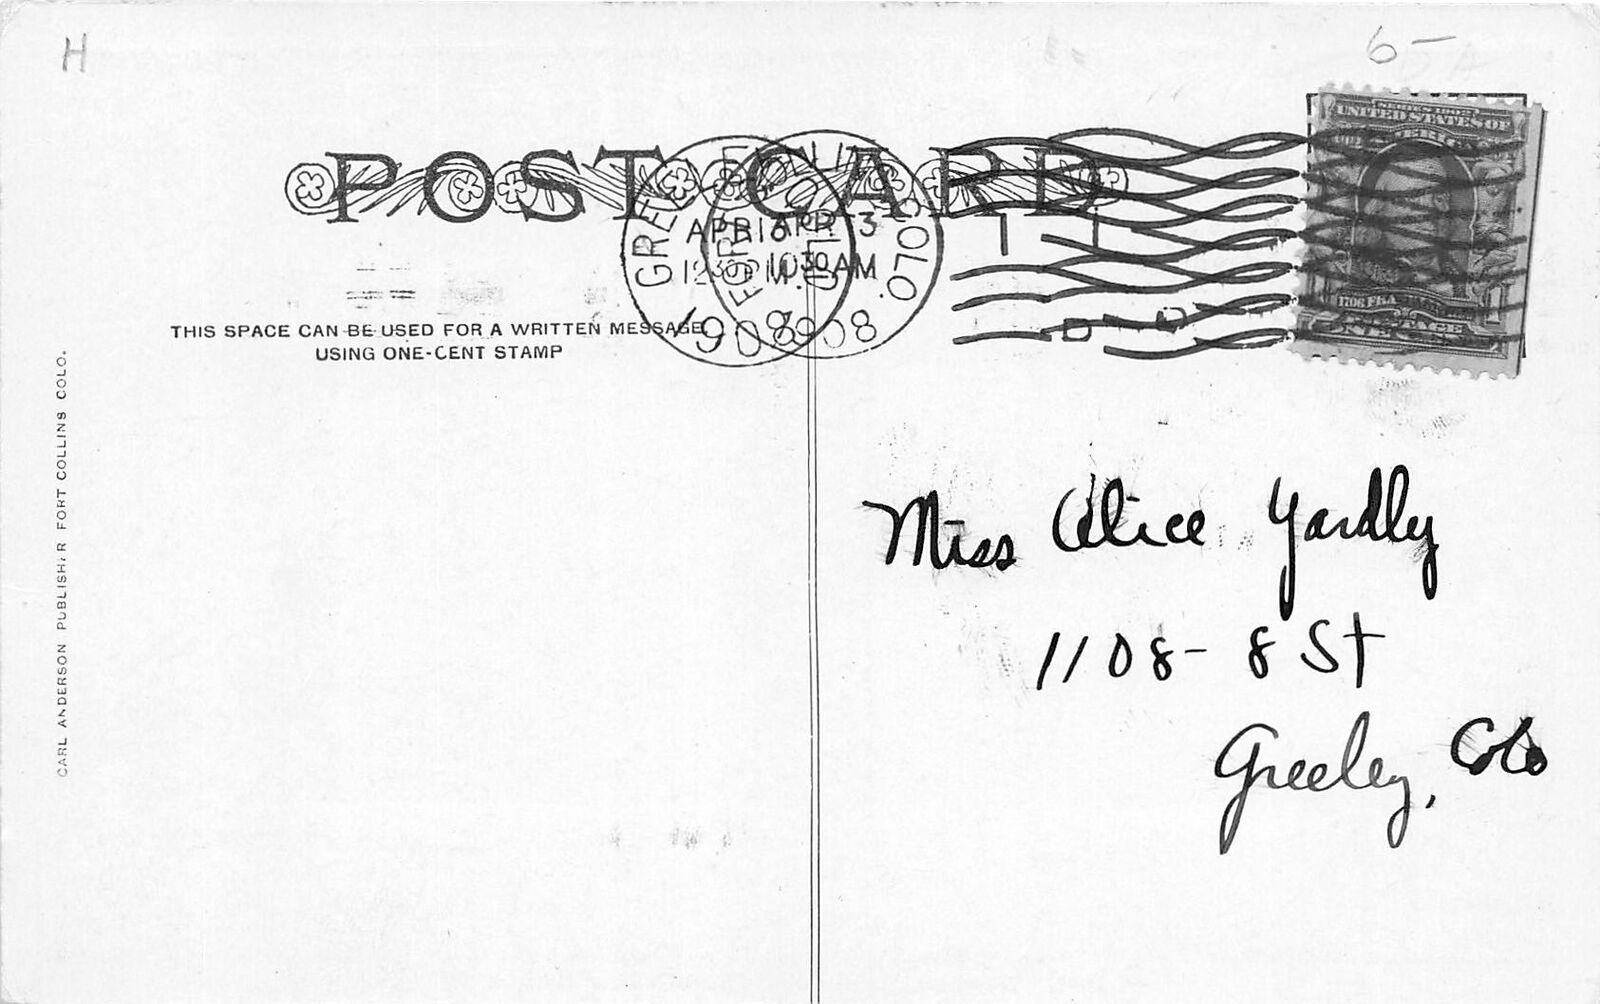 H
6-
POST CARD
1908
1908
COLO.
10 30 AM
THIS SPACE CAN BE USED FOR A WRITTEN MESSAGE
USING ONE-CENT STAMP
CARL ANDERSON PUBLISHER FORT COLLINS COLO.
SERIES 1902
UNITED STATES OF
AMERICA
1706 FRANKLIN
POSTAGE
ONE CENT
Miss Alice Yardly
1108- 8 St
Greeley, Colo